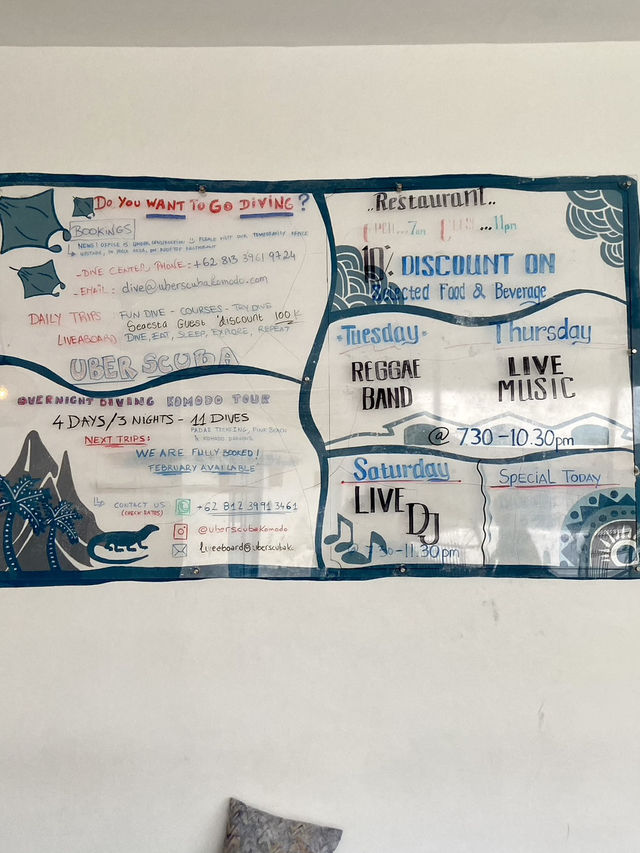 Do You WANT To Go DIVING?
BOOKINGS
NEWS! OFFICE IS UNDER CONSTRUCTION PLEASE VISIT OUR TEMPORARILY OFFICE
UPSTAIRS, IN POOL AREA, ON ROOFTOP RESTAURANT
- DIVE CENTER PHONE: +62 813 3961 9724
- EMAIL: dive@uberscubakomodo.com
DAILY TRIPS FUN DIVE - COURSES - TRY DIVE
Seaesta Guest discount 100 K
LIVEABOARD DIVE, EAT, SLEEP, EXPLORE, REPEAT
UBER SCUBA
OVERNIGHT DIVING KOMODO TOUR
4 DAYS/3 NIGHTS - 11 DIVES
PADAR TREKKING, PINK BEACH
& KOMODO DRAGONS
NEXT TRIPS:
WE ARE FULLY BOOKED!
FEBRUARY AVAILABLE
CONTACT US +62 812 3991 3461
(CHECK DATES)
@uberscubakomodo
liveaboard@uberscubak
..Restaurant..
OPEN...7am CLOSE...11pm
10% DISCOUNT ON
Selected Food & Beverage
Tuesday
REGGAE
BAND
Thursday
LIVE
MUSIC
@ 730 - 10.30pm
Saturday
LIVE
DJ
7 30 - 11.30pm
SPECIAL TODAY